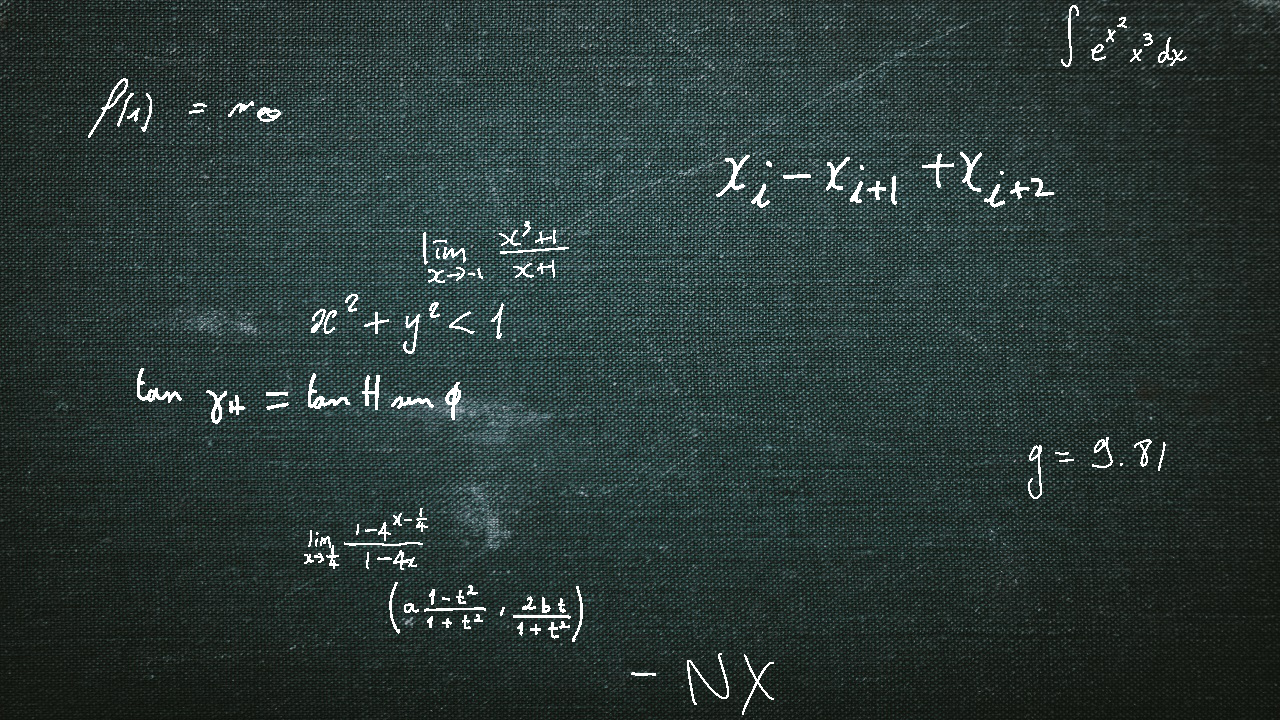 ∫ e^{x^2} x^3 dx
x_i - x_{i+1} + x_{i+2}
lim_{x→-1} \frac{x^3+1}{x+1}
x^2 + y^2 < 1
tan γ_H = tan H sin ϕ
g = 9.81
lim_{x→\frac{1}{4}} \frac{1-4^{x-\frac{1}{4}}}{1-4x}
(a \frac{1-t^2}{1+t^2}, \frac{2bt}{1+t^2})
- NX